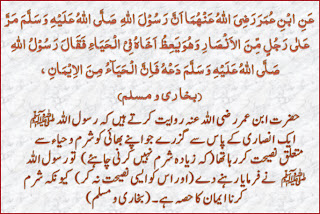 عَنِ ابْنِ عُمَرَ رَضِیَ اللهُ عَنْهُمَا اَنَّ رَسُوْلَ اللهِ صَلَّی اللهُ عَلَیْهِ وَسَلَّمَ مَرَّ
عَلٰی رَجُلٍ مِّنَ الْاَنْصَارِ وَهُوَ یَعِظُ اَخَاهُ فِی الْحَیَاءِ فَقَالَ رَسُوْلُ اللهِ
صَلَّی اللهُ عَلَیْهِ وَسَلَّمَ دَعْهُ فَاِنَّ الْحَیَاءَ مِنَ الْاِیْمَانِ ،
(بخاری و مسلم)
حضرت ابن عمر رضی اللہ عنہ روایت کرتے ہیں کہ رسول اللہ ﷺ
ایک انصاری کے پاس سے گزرے جو اپنے بھائی کو شرم و حیاء سے
متعلق نصیحت کر رہا تھا (کہ زیادہ شرم نہیں کرنی چاہیئے) تو رسول اللہ
ﷺ نے فرمایا رہنے دے (اور اس کو ایسی نصیحت نہ کر) کیونکہ شرم
کرنا ایمان کا حصہ ہے۔ (بخاری و مسلم)